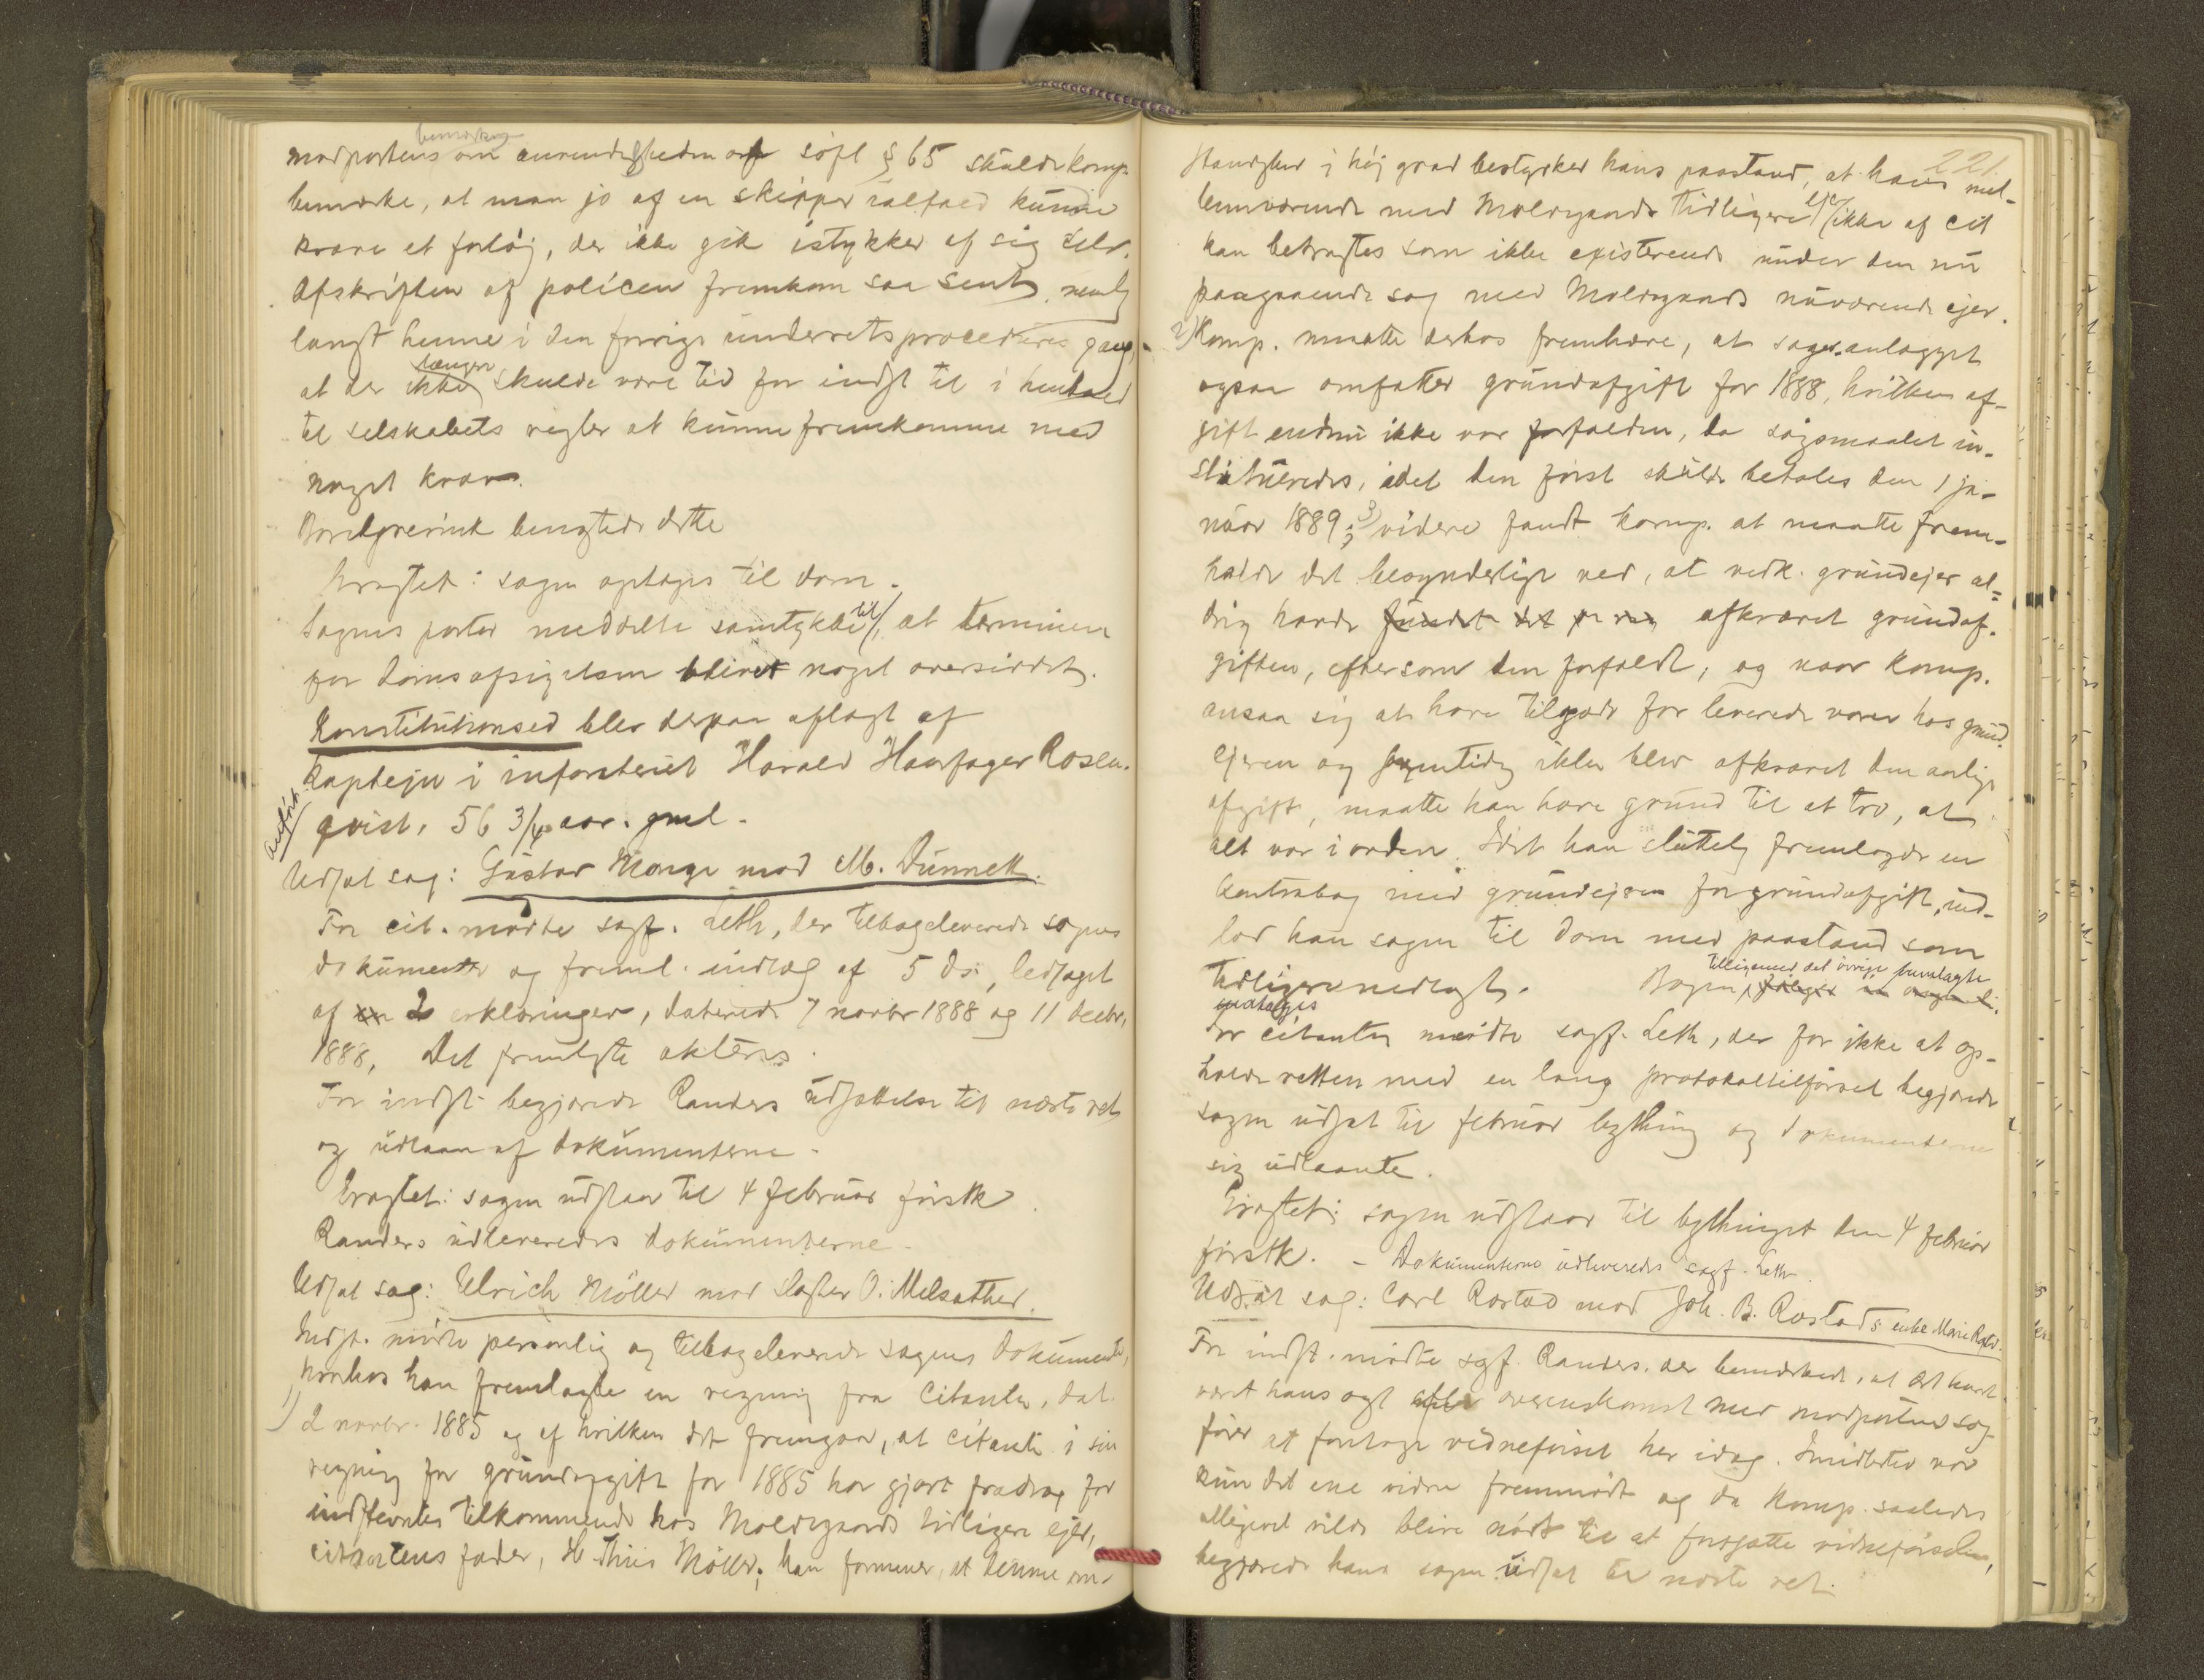 bemærkn
modpartens om anvendelsheden af søfl § 65 skulde komp.
bemærke, at man jo af en skipper ialfald kunde
kræve et fortøj, der ikke gik istykker af sig selv.
Afskriften af policen fremkom saa sent, nemlig
langt henne i den forrige underretsprocedures gang,
at der ikke længere skulde være tid for indst til i henhold
til selskabets regler at kunne fremkomme med
noget krav.
benægtede dette
Eragtet: sagen optages til dom.
Sagens parter meddelte samtykke til, at terminen
for domsafsigelsen blivet noget oversiddet.
Konstitutionsed blev derpaa aflagt af
kaptejn i infanteriet Harald Haarfager Rosen-
anført.
qvist, 56 3/4 aar. gml.
Udsat sag: Gustav Monge mod M. Dunnett.
For cit. mødte sagf. Leth, der tilbageleverede sagens
dokumenter og freml. indlæg af 5 ds., ledsaget
af 2 erklæringer, daterede 7 novbr 1888 og 11 decbr.
1888, Det fremlagte akteres.
For indst. begjærede Randers udsættelse til næste ret
og udlaan af dokumenterne.
Eragtet: sagen udstaar til 4 februar førstk.
Randers udleveredes dokumenterne.
Udsat sag: Ulrich Møller mod slagter O. Melsæther.
Indst. mødte personlig og tilbageleverede sagens dokumenter,
hvorhos han fremlagde en regning fra citanten, dat.
1) 2 novbr. 1885 og af hvilken det fremgaar, at citanten i sin
regning for grundafgift for 1885 har gjort fradrag for
indstevntes tilkommende hos Moldegaards tidligere ejer,
citantens fader, H. Thiis Møller; han formener, at denne om-
221.
stændighed i høj grad bestyrker hans paastand, at hans mel-
lemværende med Moldegaards tidligere ejer ikke af cit
kan betragtes som ikke existerende under den nu
paagaaende sag med Moldegaards nuværende ejer.
2) Komp. maatte derhos fremhæve, at sagsanlægget
ogsaa omfatter grundafgift for 1888, hvilken af-
gift endnu ikke var forfalden, da søgsmaalet in-
stitueredes, idet den først skulde betales den 1 ja-
nuar 1889; 3) videre fandt komp. at maatte frem-
holde det besynderlige ved, at vedk. grundejer al-
drig havde afkrævet grundaf-
giften, eftersom den forfaldt, og naar komp.
ansaa sig at have tilgode for leverede varer hos grund-
ejeren og samtidig ikke blev afkrævet den aarlige
afgift, maatte han have grund til at tro, at
alt var i orden. Idet han sluttelig fremlagde en
kontrabog med grundejeren for grundafgift, ind-
lod han sagen til dom med paastand som
tidligere nedlagt. Bogen tilligemed det øvrige fremlagte
modtages
For citanten mødte sagf. Leth, der for ikke at op-
holde retten med en lang protokoltilførsel begjærede
sagen udsat til februar bything og dokumenterne
sig udlaante.
Eragtet: sagen udstaar til bythinget den 4 februar
førstk. - Dokumenterne udleveredes sagf. Leth.
Udsat sag: Carl Rostad mod Joh. B. Rostads enke Marie Rostad.
For indst. mødte sgf. Randers, der bemærkede, at det havde
været hans agt efter overenskomst med modpartens sag-
fører at foretage vidneførsel her idag. Imidlertid var
kun det ene vidne fremmødt og da komp. saaledes
alligevel vilde blive nødt til at fortsætte vidneførselen,
begjærede hans sagen udsat til næste ret.